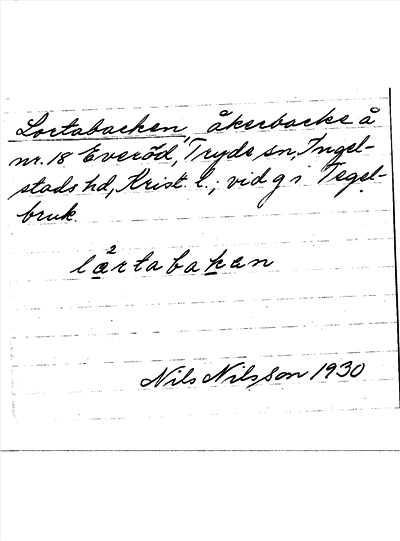 Lortabacken, åkerbacke å
nr. 18 Everöd, Tryde sn, Ingel-
stads hd, Krist. l.; vid g i Tegel-
bruk.
2
lårtabaken
Nils Nilsson 1930